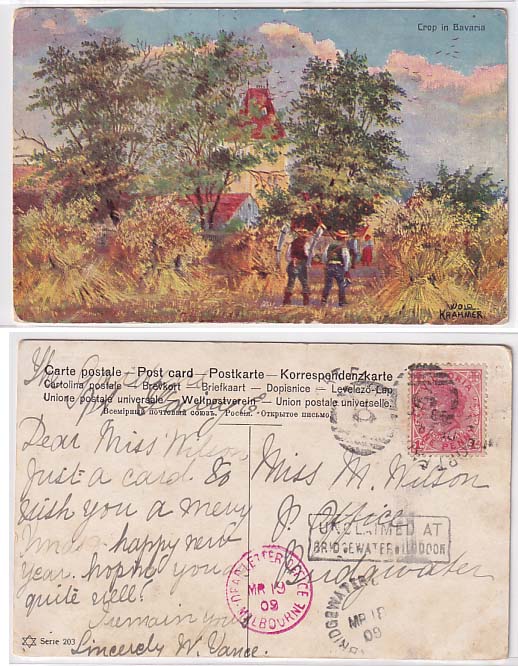 Crop in Bavaria
WOLD
KRAHMER
Carte postale — Post card — Postkarte — Korrespondenzkarte
Cartolina postale — Brevkort — Briefkaart — Dopisnice — Levelező-Lap
Unione postale universale — Weltpostverein — Union postale universelle.
Всемірный почтовый союзъ. Россія. Открытое письмо.
The
Dear Miss Wilson
Just a card to
wish you a merry
Xmas & happy new
year. hoping you
quite well.
I remain yours
Sincerely W. Vance.
Miss M. Wilson
P. Office
Bridgewater
UNCLAIMED AT
BRIDGEWATER ON LODDON
DEAD LETTER OFFICE
MR 19
09
MELBOURNE
BRIDGEWATER
MR 18
09
Serie 203